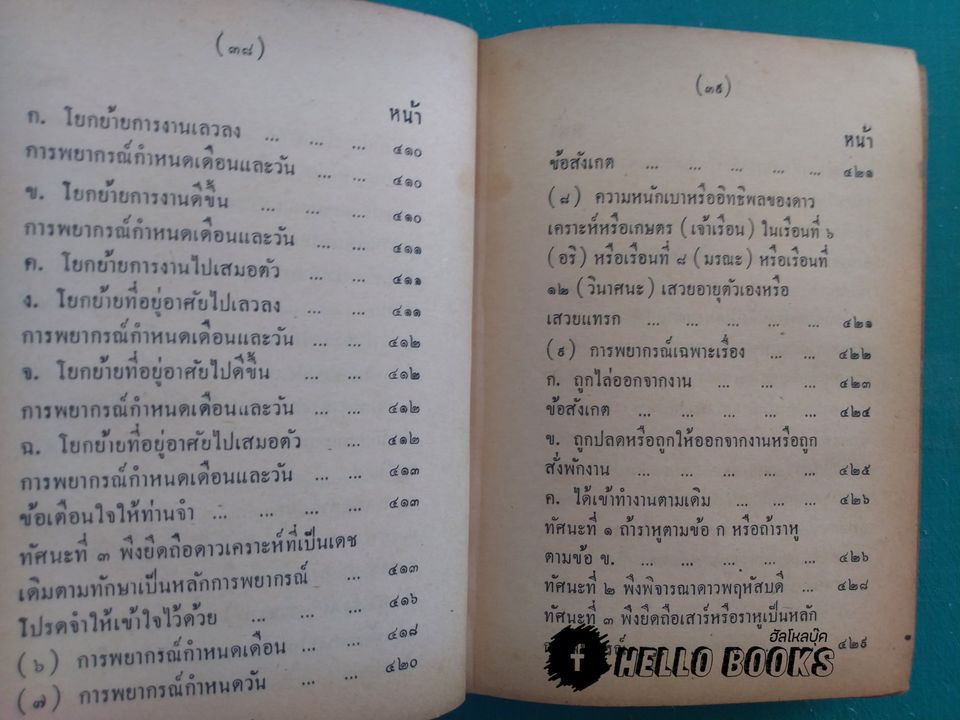 (๓๘)
หน้า
ก. โยกย้ายการงานเลวลง ... ... ... ๔๑๐
การพยากรณ์กำหนดเดือนและวัน ... ... ๔๑๐
ข. โยกย้ายการงานดีขึ้น ... ... ... ๔๑๐
การพยากรณ์กำหนดเดือนและวัน ... ... ๔๑๑
ค. โยกย้ายการงานไปเสมอตัว ... ... ๔๑๑
ง. โยกย้ายที่อยู่อาศัยไปเลวลง ... ... ๔๑๑
การพยากรณ์กำหนดเดือนและวัน ... ... ๔๑๒
จ. โยกย้ายที่อยู่อาศัยไปดีขึ้น ... ... ๔๑๒
การพยากรณ์กำหนดเดือนและวัน ... ... ๔๑๒
ฉ. โยกย้ายที่อยู่อาศัยไปเสมอตัว ... ๔๑๒
การพยากรณ์กำหนดเดือนและวัน ... ... ๔๑๓
ข้อเตือนใจให้ท่านจำ ... ... ... ... ๔๑๓
ทัศนะที่ ๓ พึงยึดถือดาวเคราะห์ที่เป็นเดช
เดิมตามทักษาเป็นหลักการพยากรณ์ ... ๔๑๓
โปรดจำให้เข้าใจไว้ด้วย ... ... ... ๔๑๖
(๖) การพยากรณ์กำหนดเดือน ... ... ๔๑๘
(๗) การพยากรณ์กำหนดวัน ... ... ๔๒๐
(๓๙)
หน้า
ข้อสังเกต ... ... ... ... ... ๔๒๑
(๘) ความหนักเบาหรืออิทธิพลของดาว
เคราะห์หรือเกษตร (เจ้าเรือน) ในเรือนที่ ๖
(อริ) หรือเรือนที่ ๘ (มรณะ) หรือเรือนที่
๑๒ (วินาศนะ) เสวยอายุตัวเองหรือ
เสวยแทรก ... ... ... ... ... ๔๒๑
(๙) การพยากรณ์เฉพาะเรื่อง ... ... ๔๒๒
ก. ถูกไล่ออกจากงาน ... ... ... ๔๒๓
ข้อสังเกต ... ... ... ... ... ๔๒๔
ข. ถูกปลดหรือถูกให้ออกจากงานหรือถูก
สั่งพักงาน ... ... ... ... ... ๔๒๕
ค. ได้เข้าทำงานตามเดิม ... ... ... ๔๒๖
ทัศนะที่ ๑ ถ้าราหูตามข้อ ก หรือถ้าราหู
ตามข้อ ข. ... ... ... ... ... ๔๒๖
ทัศนะที่ ๒ พึงพิจารณาดาวพฤหัสบดี ... ๔๒๘
ทัศนะที่ ๓ พึงยึดถือเสาร์หรือราหูเป็นหลัก
๔๒๙
ฮัลโหลบุ๊ค
HELLO BOOKS